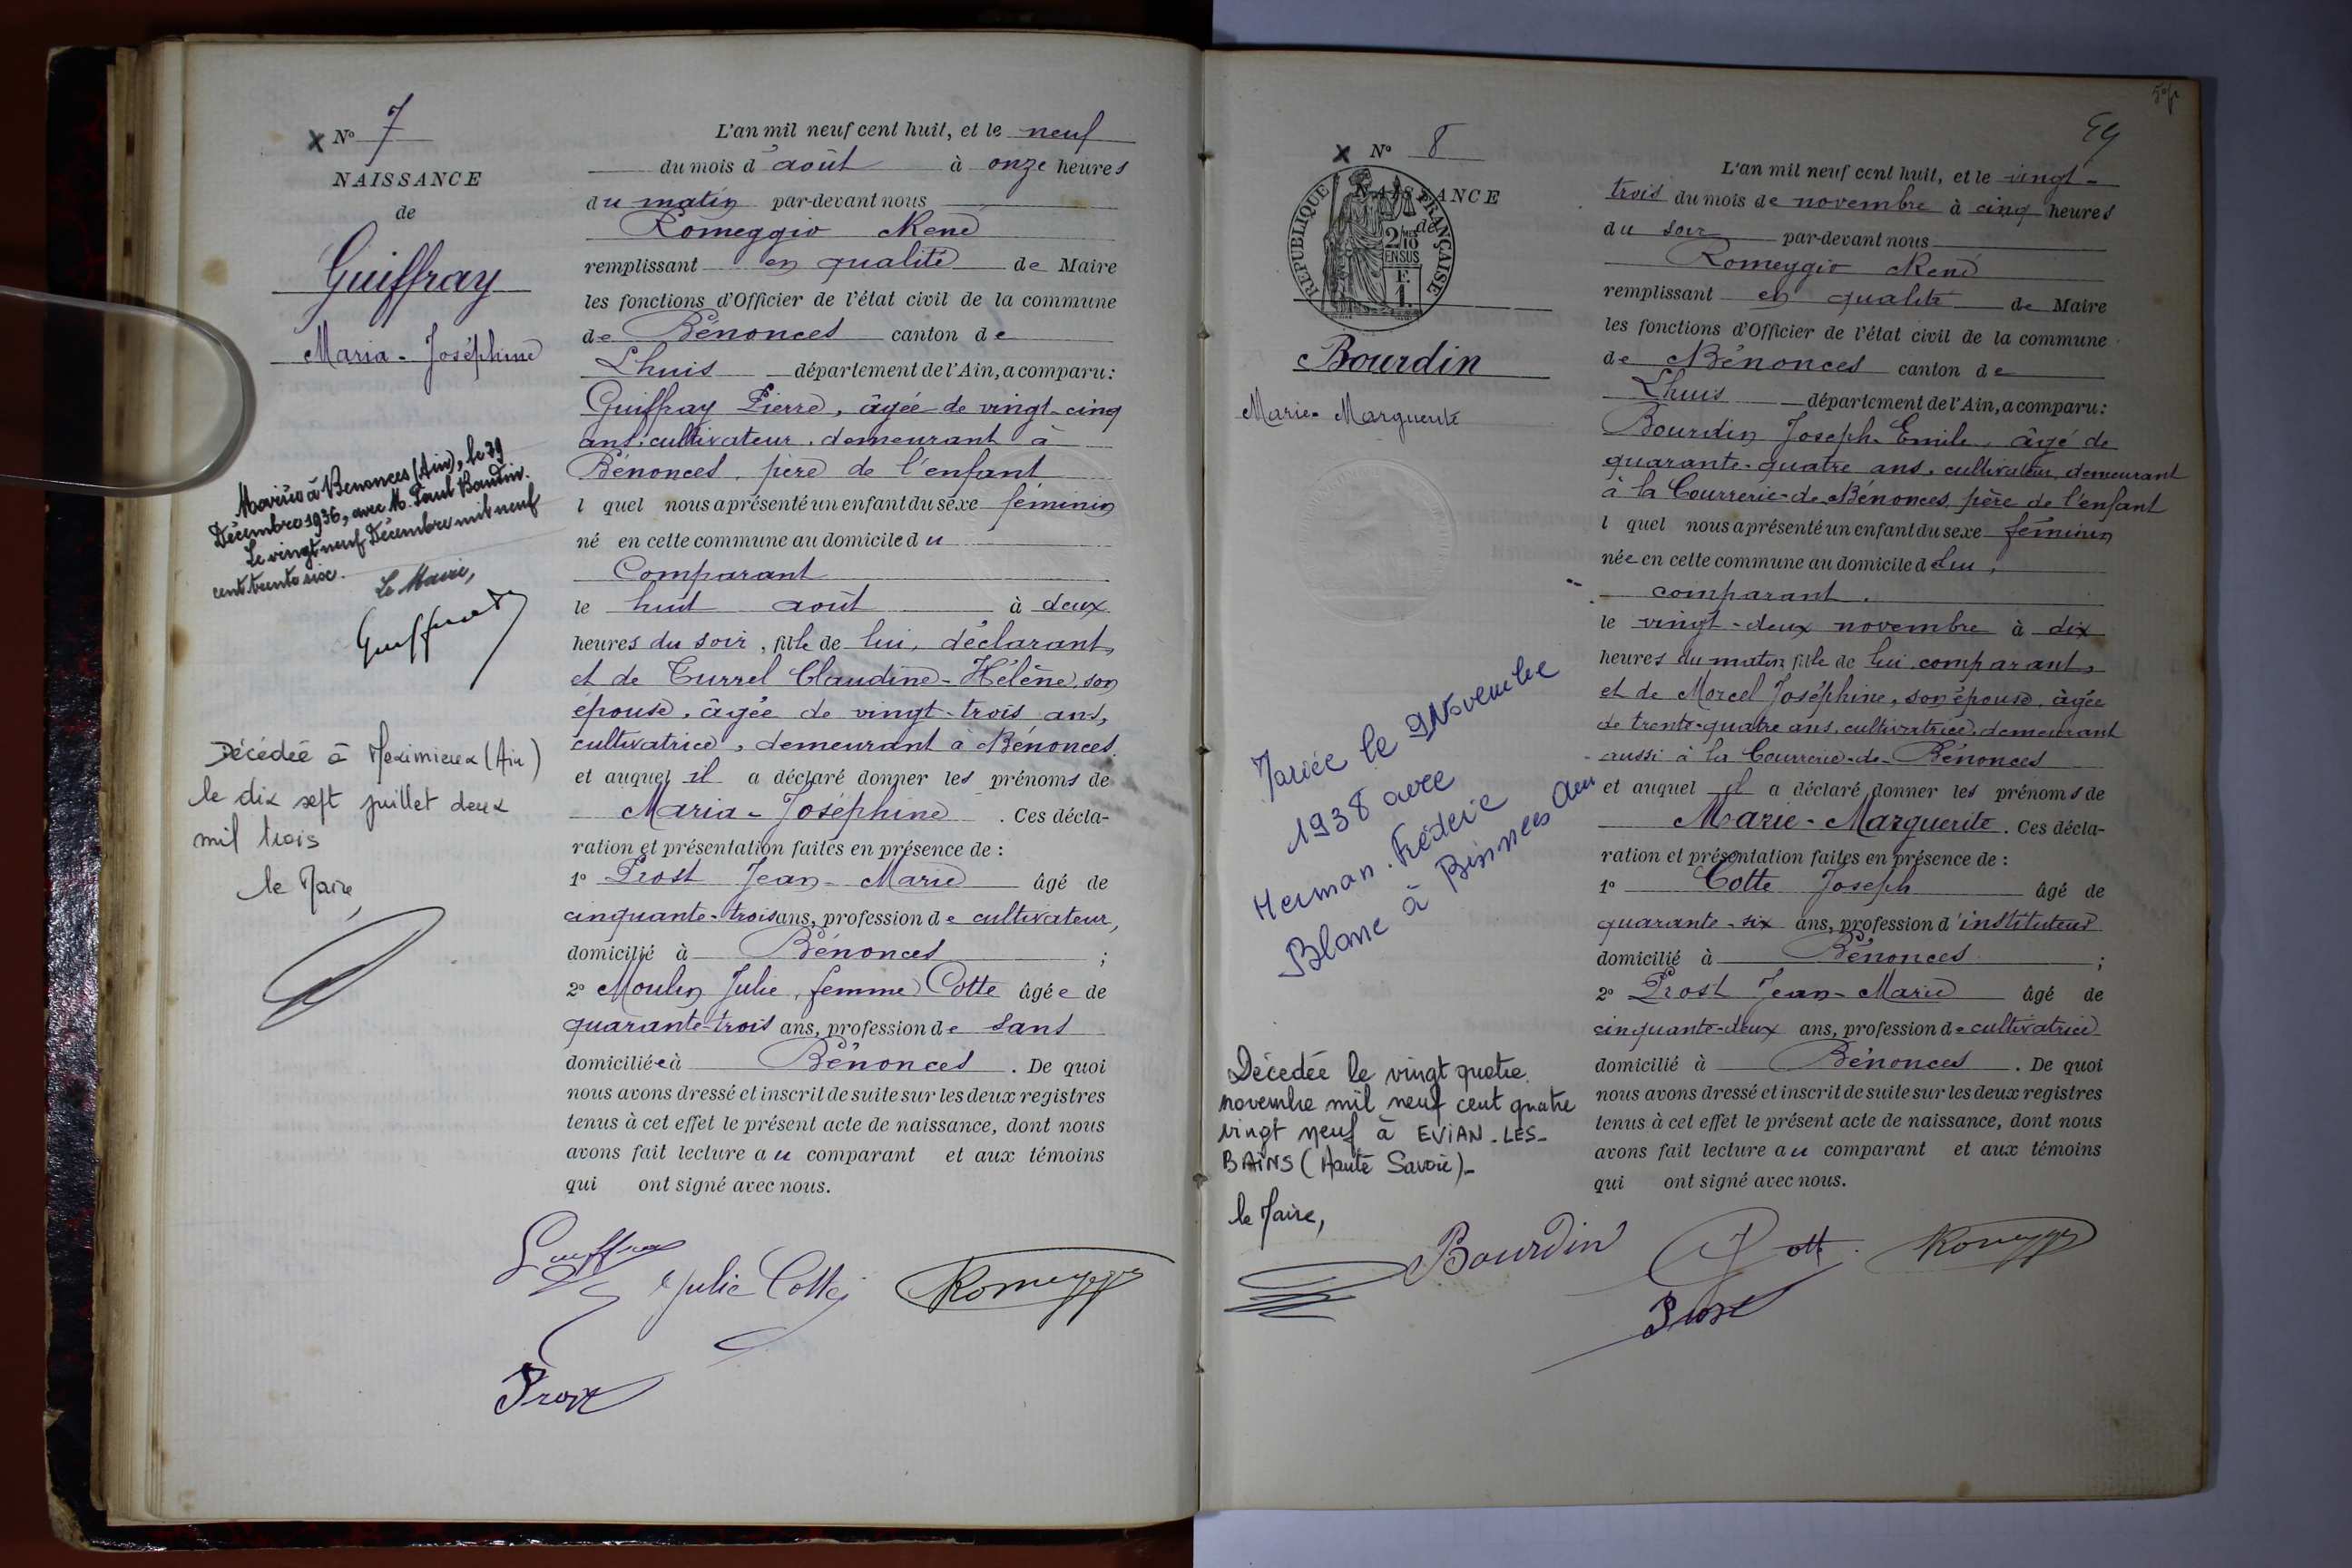 x N° 7
NAISSANCE
de
Guiffray
Maria - Joséphine
Mariée à Benonces (Ain), le 29
Décembre 1936, avec M. Paul Baudin.
Le vingt neuf Décembre mil neuf
cent trente six.
Le Maire,
Guiffray
Décédée à Meximieux (Ain)
le dix sept juillet deux
mil trois
le Maire,
L'an mil neuf cent huit, et le neuf
du mois d'août à onze heures
du matin par-devant nous
Romeggio René
remplissant en qualité de Maire
les fonctions d'Officier de l'état civil de la commune
de Bénonces canton de
Lhuis département de l'Ain, a comparu:
Guiffray Pierre, âgée de vingt-cinq
ans, cultivateur, demeurant à
Bénonces, père de l'enfant
l quel nous a présenté un enfant du sexe féminin
né en cette commune au domicile du
Comparant
le huit août à deux
heures du soir, fille de lui, déclarant,
et de Turrel Claudine-Hélène, son
épouse, âgée de vingt-trois ans,
cultivatrice, demeurant à Bénonces.
et auquel il a déclaré donner les prénoms de
Maria-Joséphine. Ces décla-
ration et présentation faites en présence de :
1° Prost Jean-Marie âgé de
cinquante-trois ans, profession de cultivateur,
domicilié à Bénonces ;
2° Moulin Julie, femme Cotte âgée de
quarante-trois ans, profession de sans
domiciliée à Bénonces. De quoi
nous avons dressé et inscrit de suite sur les deux registres
tenus à cet effet le présent acte de naissance, dont nous
avons fait lecture au comparant et aux témoins
qui ont signé avec nous.
Guiffray
Julie Cotte
Romeggio
Prost
59
x N° 8
NAISSANCE
de
RÉPUBLIQUE FRANÇAISE
2/10 MES
EN SUS
F.
1.
Bourdin
Marie-Marguerite
Mariée le 9 Novembre
1938 avec
Herman. Fréderic
Blanc à Bénonces Ain
Décédée le vingt quatre
novembre mil neuf cent quatre
vingt neuf à EVIAN-LES-
BAINS (Haute Savoie)-
le Maire,
L'an mil neuf cent huit, et le vingt-
trois du mois de novembre à cinq heures
du soir par-devant nous
Romeggio René
remplissant en qualité de Maire
les fonctions d'Officier de l'état civil de la commune
de Bénonces canton de
Lhuis département de l'Ain, a comparu:
Bourdin Joseph-Emile, âgé de
quarante-quatre ans, cultivateur, demeurant
à la Courrerie-de-Bénonces, père de l'enfant
l quel nous a présenté un enfant du sexe féminin
née en cette commune au domicile de lui,
comparant.
le vingt-deux novembre à dix
heures du matin fille de lui comparant,
et de Morcel Joséphine, son épouse, âgée
de trente-quatre ans, cultivatrice, demeurant
aussi à la Courrerie-de-Bénonces
et auquel il a déclaré donner les prénoms de
Marie-Marguerite. Ces décla-
ration et présentation faites en présence de :
1° Cotte Joseph âgé de
quarante-six ans, profession d'instituteur
domicilié à Bénonces ;
2° Prost Jean-Marie âgé de
cinquante-deux ans, profession de cultivatrice
domicilié à Bénonces. De quoi
nous avons dressé et inscrit de suite sur les deux registres
tenus à cet effet le présent acte de naissance, dont nous
avons fait lecture au comparant et aux témoins
qui ont signé avec nous.
Bourdin
Cotte
Romeggio
Prost